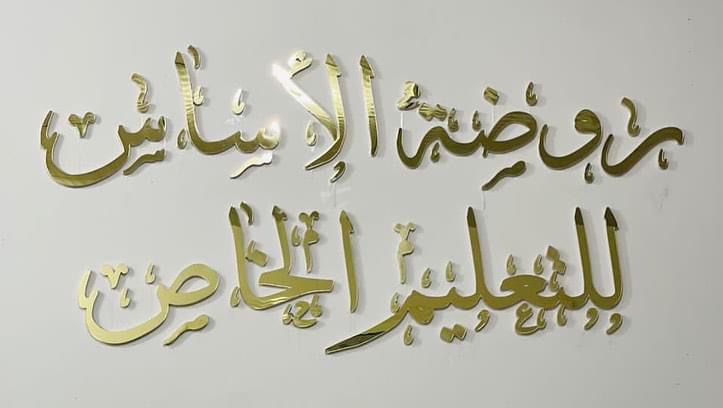 روضة الأساس
للتعليم الخاص